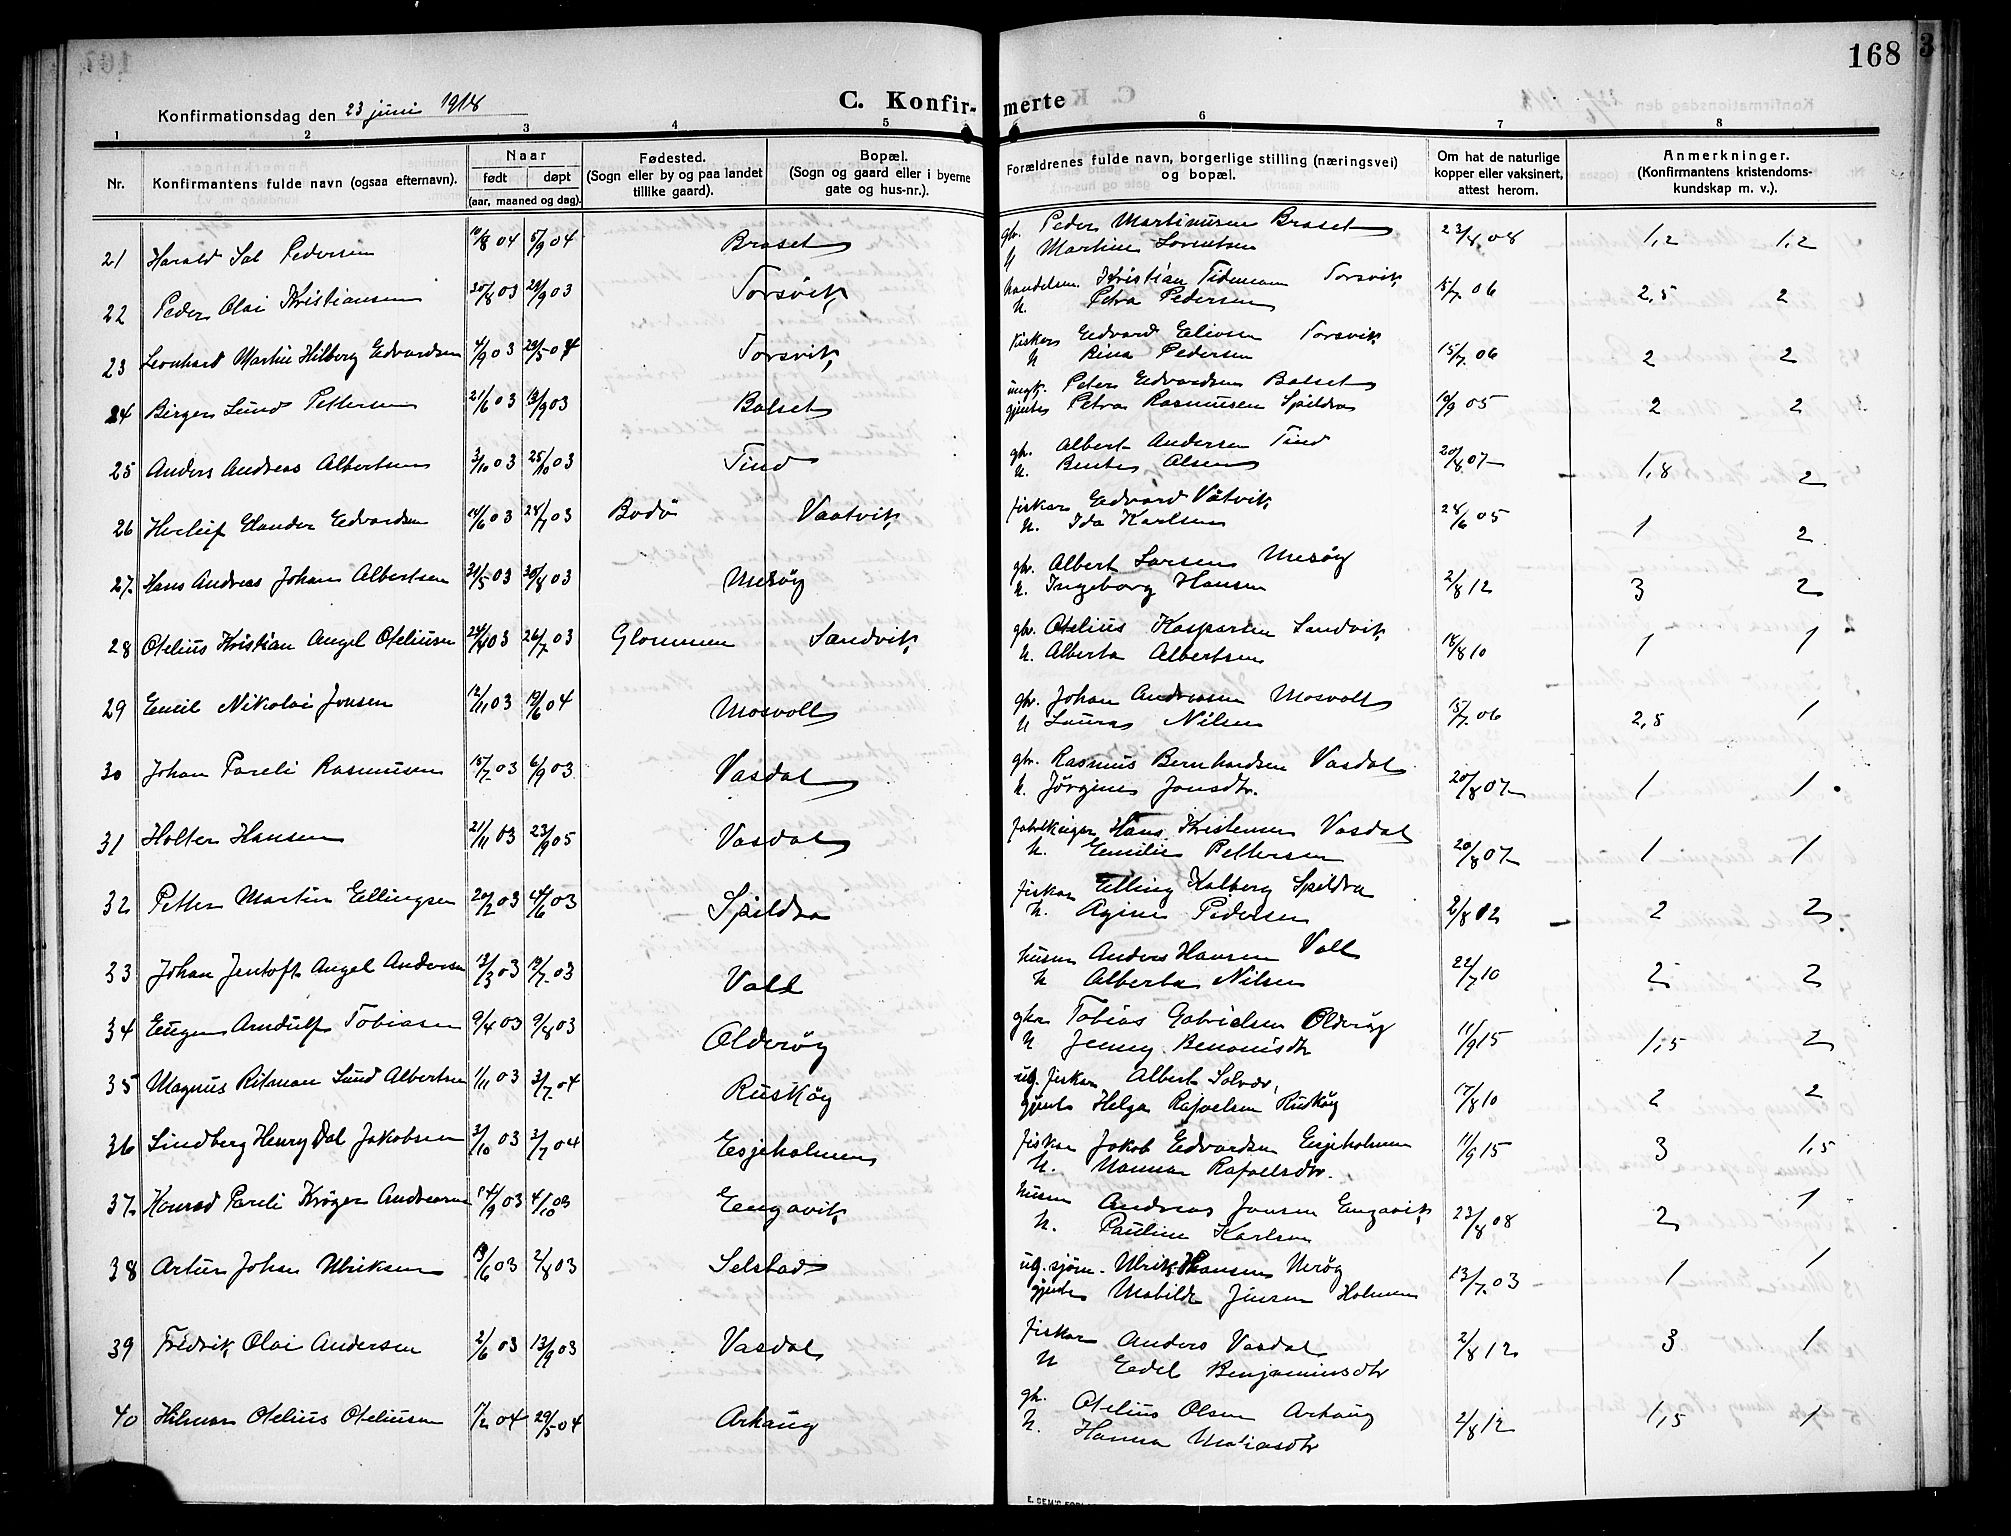 168
C. Konfir- merte
Konfirmationsdag den 23 juni 1918
1 2 3 4 5 6 7 8
Nr.
Konfirmantens fulde navn (ogsaa efternavn).
Naar
født døpt
(aar, maaned og dag).
Fødested.
(Sogn eller by og paa landet
tillike gaard).
Bopæl.
(Sogn og gaard eller i byerne
gate og hus-nr.).
Forældrenes fulde navn, borgerlige stilling (næringsvei)
og bopæl.
Om hat de naturlige
kopper eller vaksinert,
attest herom.
Anmerkninger.
(Konfirmantens kristendoms-
kundskap m. v.).
21 Harald Sal Pedersen 10/8 04 5/9 04 Braset gbr. Peder Martinusen Braset 23/8 08 1,2 1,2
h Martine Sorentsen
22 Peder Olai Kristiansen 20/8 03 28/9 03 Torsvik handelsm. Kristian Tidemann Torsvik 15/7 06 2,5 2
h. Petra Pedersen
23 Leonhard Martin Hilberg Edvardsen 4/9 03 29/5 04 Torsvik fisker Edvard Elivsen Torsvik 15/7 06 2 2
h Rina Pedersen
24 Birger Lund Pettersen 21/6 03 13/9 03 Balset ungk. Peter Edvardsen Balset 10/9 05 2 2
gjente Petra Rasmusen Spildra
25 Anders Andreas Albertsen 3/10 03 25/10 03 Tind gb. Albert Andersen Tind 20/8 07 1,8 2
h. Bente Olsen
26 Herleif Elander Edvardsen 14/6 03 24/7 03 Bodö Vaatvik fisker Edvard Vatvik 24/6 05 1 2
h. Ida Karlsen
27. Hans Andreas Johan Albertsen 31/5 03 30/8 03 Mesöy gbr. Albert Larsen Mesöy 2/8 12 3 2
h. Ingeborg Hansen
28 Otelius Kristian Angel Oteliusen 24/4 03 26/7 03 Glommen Sandvik gbr. Otelius Kaspersen Sandvik 18/8 10 1 1
h. Alberta Albertsen
29 Emil Nikolai Jonsen 12/11 03 19/6 04 Mosvoll gbr. Johan Andreasen Mosvoll 15/7 06 2,5 1
h Laura Nilsen
30 Johan Pareli Rasmusen 15/7 03 6/9 03 Vasdal gbr. Rasmus Bernhardsen Vasdal 20/8 07 1 1
h. Jørgine Jonsdtr.
31 Holter Hansen 21/11 03 23/9 05 Vasdal Hans Kristensen Vasdal 20/8 07 1 1
h. Emilie Pettersen
32 Petter Martin Ellingsen 20/2 03 14/6 03 Spildra fisker Elling Kalberg Spildra 2/8 12 2 2
h. Agine Pedersen
33 Johan Jentoft Angel Andersen 13/3 03 19/7 03 Vall husm Anders Hansen Vall 22/7 10 2 2
h Alberta Nilsen
34 Eugen Arndulf Tobiasen 9/4 03 9/8 03 Olderöy gbr Tobias Gabrielsen Olderöy 11/9 15 1,5 2
h Jenny Benonisdtr
35 Magnus Ritman Lund Albertsen 1/11 03 3/7 04 Rusköy ug. fisker Albert Solvær, 17/8 10 2 2
gjente Helga Rafaelsen Rusköy
36 Lindberg Henry Dal Jakobsen 3/10 03 3/7 04 Esjeholmen fisker Jakob Edvardsen Esjeholmen 11/9 15 3 1,5
h. Nanna Rafaelsdtr.
37. Konrad Pareli Krøger Andreasen 14/9 03 4/10 03 Engavik husm Andreas Jonsen Engavik 23/8 08 2 1
h. Pauline Karlsen
38 Artur Johan Ulriksen 19/6 03 2/8 03 Selstad ug. sjöm. Ulrik Hansen Meröy 13/7 03 1 1
gjente Matilde Jensen Holmen
39 Fredrik Olai Andersen 2/6 03 13/9 03 Vasdal fisker Anders Vasdal 2/8 12 3 1
h Edel Benjaminsdtr
40 Hilmar Otelius Oteliusen 7/2 04 29/5 04 Arhaug gb. Otelius Olsen Arhaug 2/8 12 1,5 1
h. Hanna Matiasdtr